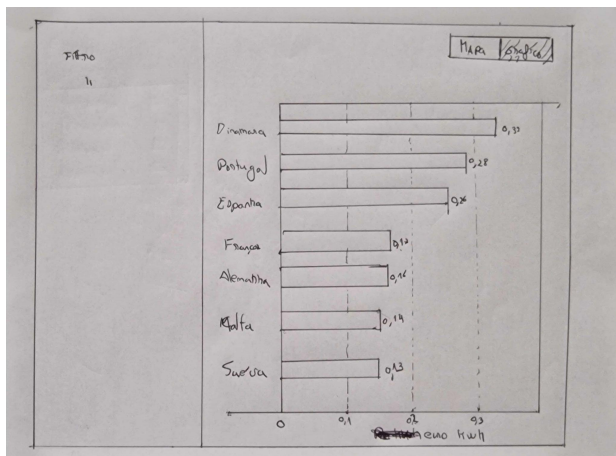 Filtro
"
Mapa Gráfico
Dinamarca
Portugal 0,28
Espanha 0,26
França
Alemanha 0,16
Malta 0,14
Suécia 0,13
0 0,1 0,2 0,3
euro kwh